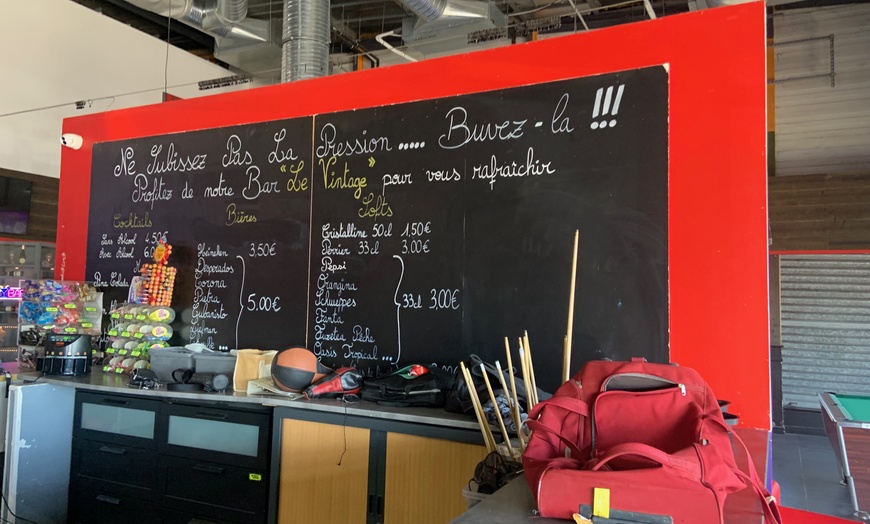 Ne Subissez Pas La Pression ..... Buvez-la !!!
Profitez de notre Bar "Le Vintage" pour vous rafraîchir
Cocktails
Sans Alcool 4.50€
Avec Alcool 6.0
Pina Colada
Bières
Heineken 3,50€
Desperados
Corona
Pietra
Cubanisto
5.00€
Softs
Cristalline 50cl 1,50€
Perrier 33cl 3,00€
Pepsi
Orangina
Schweppes
Fanta
Fuzetea Pêche
Oasis Tropical ...
33cl 3,00€